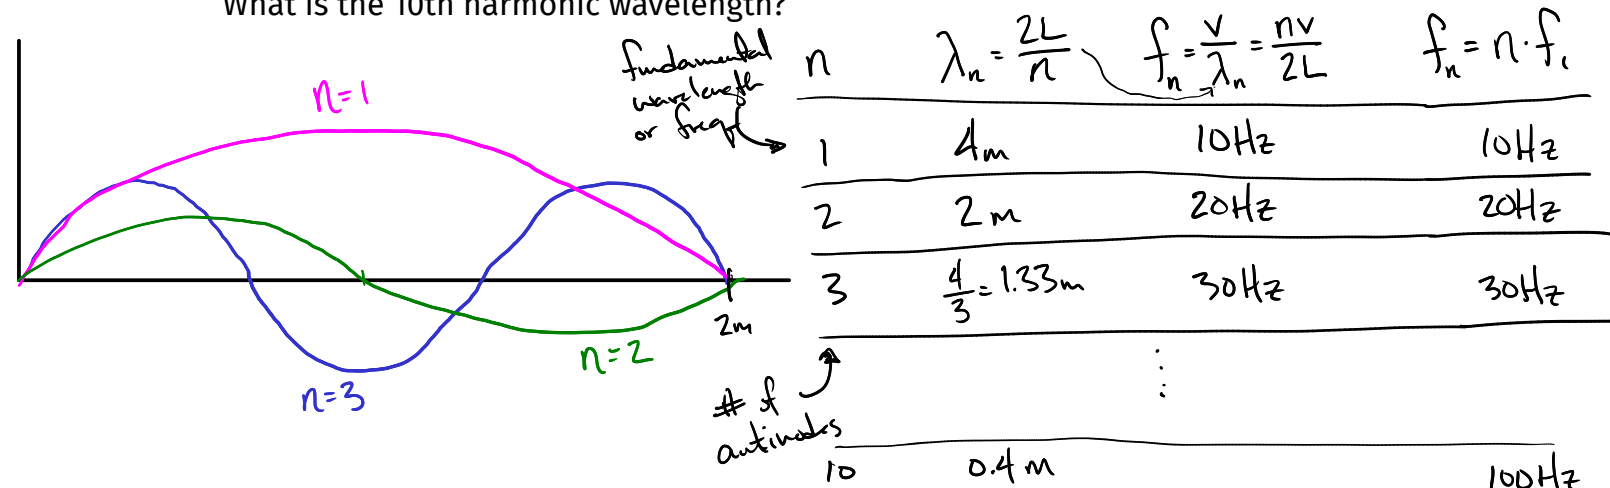 What is the 10th harmonic wavelength?
n=1
n=2
n=3
2m
fundamental
wavelength
or freq
n λₙ = 2L/n fₙ = v/λₙ = nv/2L fₙ = n·f₁
1 4m 10Hz 10Hz
2 2m 20Hz 20Hz
3 4/3 = 1.33m 30Hz 30Hz
# of
antinodes
10 0.4m 100Hz